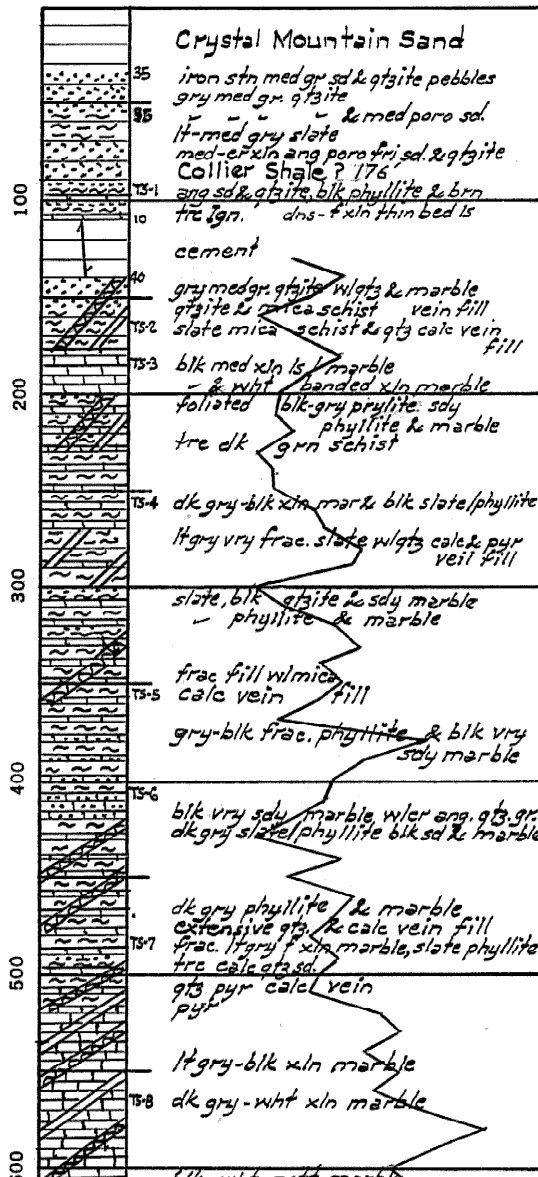 Crystal Mountain Sand
35 iron stn med gr sd & qtzite pebbles
gry med gr. qtzite
95 & med poro sd.
lt-med gry slate
med-er xln ang poro fri sd. & qtzite
Collier Shale ? 176
TS-1 ang sd & qtzite, blk phyllite & brn
100
10 trc Ign. dns-f xln thin bed ls
cement
40
gry med gr. qtzite w/qtz & marble
qtzite & mica schist vein fill
TS-2 slate mica schist & qtz calc vein
fill
TS-3 blk med xln ls / marble
& wht banded xln marble
200
foliated blk-gry prylite sdy
phyllite & marble
trc dk grn schist
TS-4 dk gry-blk xln mar & blk slate/phyllite
lt gry vry frac. slate w/qtz calc & pyr
veil fill
300
slate, blk qtzite & sdy marble
phyllite & marble
frac fill w/mica
TS-5 calc vein fill
gry-blk frac. phyllite & blk vry
sdy marble
400
TS-6
blk vry sdy marble w/cr ang. qtz. gr.
dk gry slate/phyllite blk sd & marble
dk gry phyllite & marble
extensive qtz. & calc vein fill
TS-7 frac. lt gry f xln marble, slate phyllite
trc calc qtz sd.
500
qtz pyr calc vein
pyr
lt gry-blk xln marble
TS-8 dk gry-wht xln marble